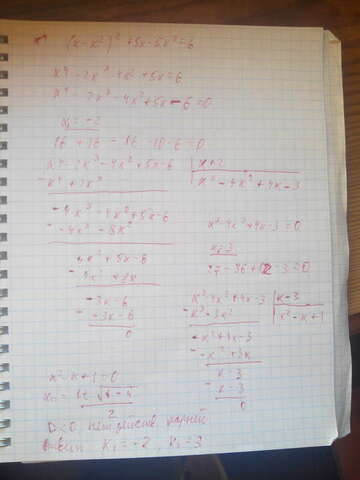 (x-x²)² + 5x-5x²=6
x⁴ - 2x³ - 4x² + 5x = 6
x⁴ - 2x³ - 4x² + 5x - 6 = 0
x₁ = -2
16 + 16 - 16 - 10 - 6 = 0
x⁴ - 2x³ - 4x² + 5x - 6 | x+2
- x⁴ + 2x³ | x³ - 4x² + 4x - 3
-4x³ - 4x² + 5x - 6
- -4x³ - 8x²
4x² + 5x - 6
- 4x² + 8x
-3x - 6
- -3x - 6
0
x³ - 4x² + 4x - 3 = 0
x₂ = 3
27 - 36 + 12 - 3 = 0
x³ - 4x² + 4x - 3 | x - 3
- x³ - 3x² | x² - x + 1
-x² + 4x - 3
- -x² + 3x
x - 3
- x - 3
0
x² - x + 1 = 0
D < 0 нет действ. корней
x₁ = -2, x₂ = 3